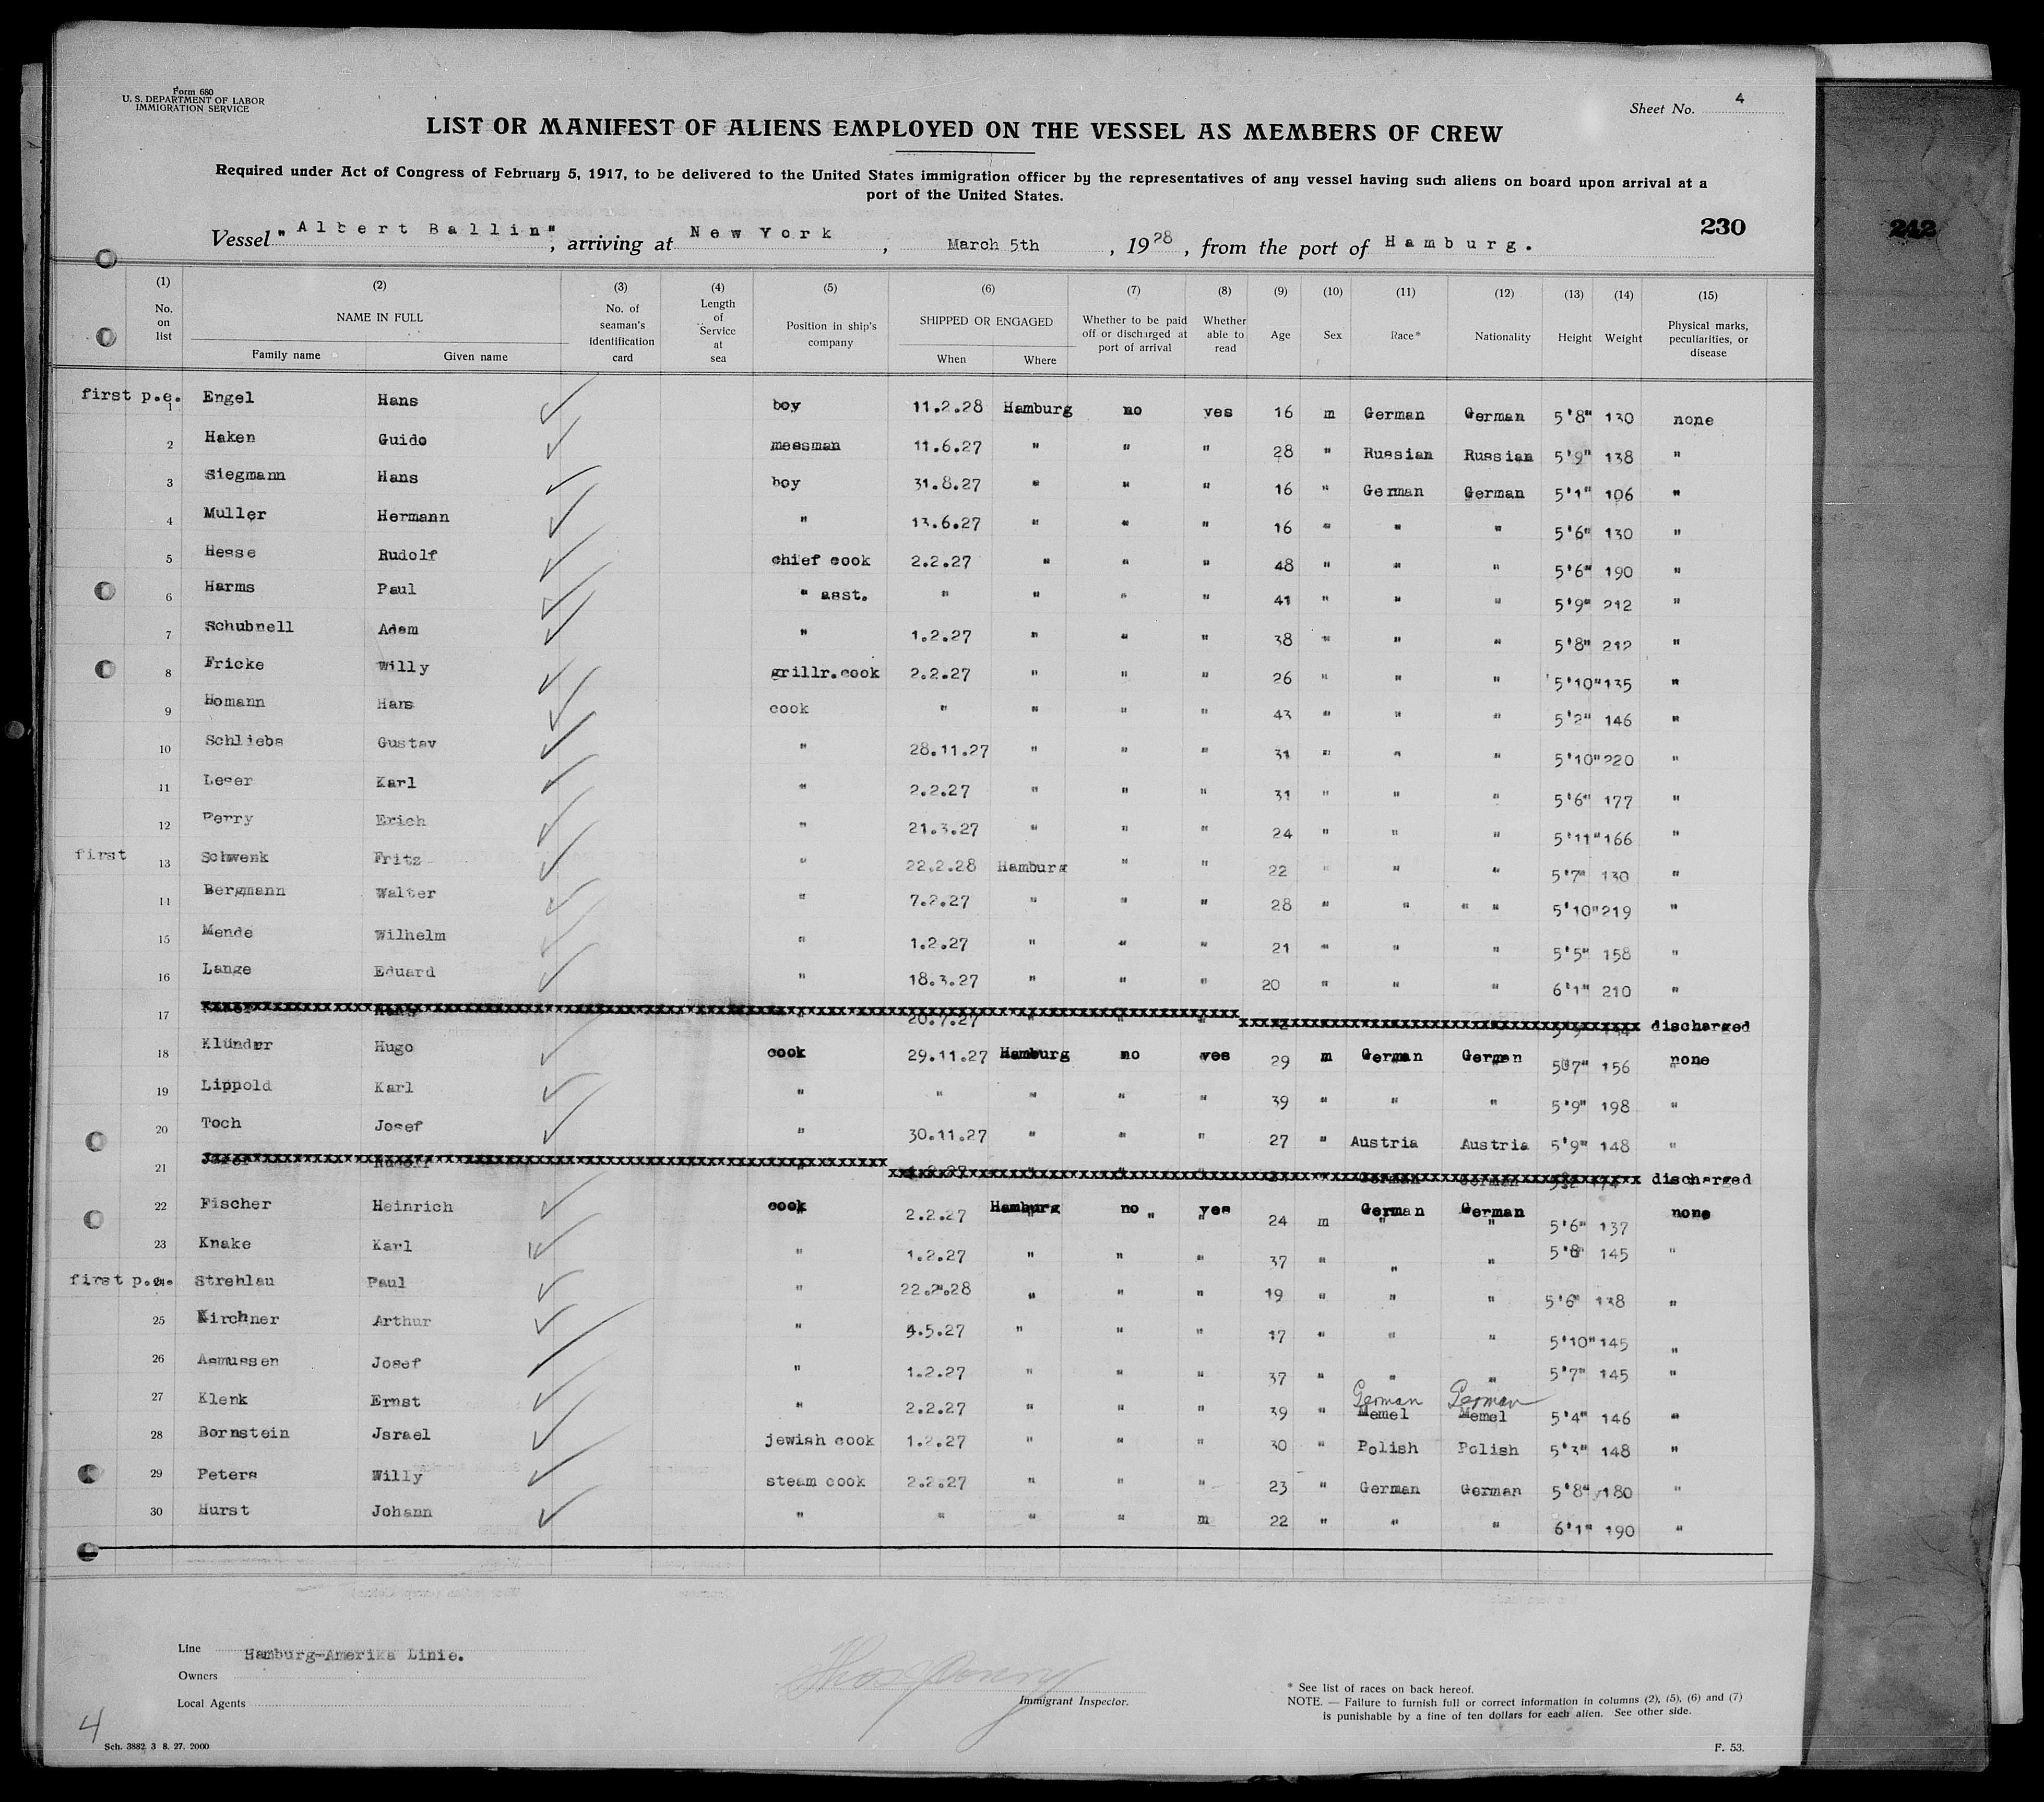 Form 680
U. S. DEPARTMENT OF LABOR
IMMIGRATION SERVICE
Sheet No. 4
LIST OR MANIFEST OF ALIENS EMPLOYED ON THE VESSEL AS MEMBERS OF CREW
Required under Act of Congress of February 5, 1917, to be delivered to the United States immigration officer by the representatives of any vessel having such aliens on board upon arrival at a
port of the United States.
230
242
Vessel "Albert Ballin", arriving at New York, March 5th, 1928, from the port of Hamburg.
(1) (2) (3) (4) (5) (6) (7) (8) (9) (10) (11) (12) (13) (14) (15)
No. on list NAME IN FULL Family name Given name No. of seaman's identification card Length of Service at sea Position in ship's company SHIPPED OR ENGAGED When Where Whether to be paid off or discharged at port of arrival Whether able to read Age Sex Race* Nationality Height Weight Physical marks, peculiarities, or disease
first p.e. 1 Engel Hans boy 11.2.28 Hamburg no yes 16 m German German 5'8" 130 none
2 Haken Guido messman 11.6.27 " " " 28 " Russian Russian 5'9" 138 "
3 Siegmann Hans boy 31.8.27 " " " 16 " German German 5'1" 106 "
4 Muller Hermann " 13.6.27 " " " 16 " " " 5'6" 130 "
5 Hesse Rudolf chief cook 2.2.27 " " " 48 " " " 5'6" 190 "
6 Harms Paul " asst. " " " " 41 " " " 5'9" 212 "
7 Schubnell Adam " 1.2.27 " " " 38 " " " 5'8" 212 "
8 Fricke Willy grillr.cook 2.2.27 " " " 26 " " " 5'10" 135 "
9 Homann Hans cook " " " " 43 " " " 5'2" 146 "
10 Schliebs Gustav " 28.11.27 " " " 31 " " " 5'10" 220 "
11 Leser Karl " 2.2.27 " " " 31 " " " 5'6" 177 "
12 Perry Erich " 21.3.27 " " " 24 " " " 5'11" 166 "
first 13 Schwenk Fritz " 22.2.28 Hamburg " " 22 " " " 5'7" 130 "
14 Bergmann Walter " 7.2.27 " " " 28 " " " " 5'10" 219 "
15 Mende Wilhelm " 1.2.27 " " " 21 " " " 5'5" 158 "
16 Lange Eduard " 18.3.27 " " " 20 " " " 6'1" 210 "
17 discharged
18 Klünder Hugo cook 29.11.27 Hamburg no yes 29 m German German 5'7" 156 none
19 Lippold Karl " " " " " 39 " " " 5'9" 198 "
20 Toch Josef " 30.11.27 " " " 27 " Austria Austria 5'9" 148 "
21 discharged
22 Fischer Heinrich cook 2.2.27 Hamburg no " yes 24 m German German 5'6" 137 none
23 Knake Karl " 1.2.27 " " " 37 " " " 5'8" 145 "
first p.e. 24 Strehlau Paul " 22.2.28 " " " 19 " " " 5'6" 138 "
25 Kirchner Arthur " 4.5.27 " " " 17 " " " 5'10" 145 "
26 Asmussen Josef " 1.2.27 " " " 37 " " " 5'7" 145 "
German German
27 Klenk Ernst " 2.2.27 " " " 39 " Memel Memel 5'4" 146 "
28 Bornstein Jsrael jewish cook 1.2.27 " " " 30 " Polish Polish 5'3" 148 "
29 Peters Willy steam cook 2.2.27 " " " 23 " German German 5'8" 180 "
30 Hurst Johann " " " " m 22 " " " 6'1" 190 "
Line Hamburg-Amerika Linie.
Owners
Local Agents
Immigrant Inspector.
* See list of races on back hereof.
NOTE. — Failure to furnish full or correct information in columns (2), (5), (6) and (7)
is punishable by a fine of ten dollars for each alien. See other side.
4
Sch. 3882. 3 8. 27. 2000
F. 53.